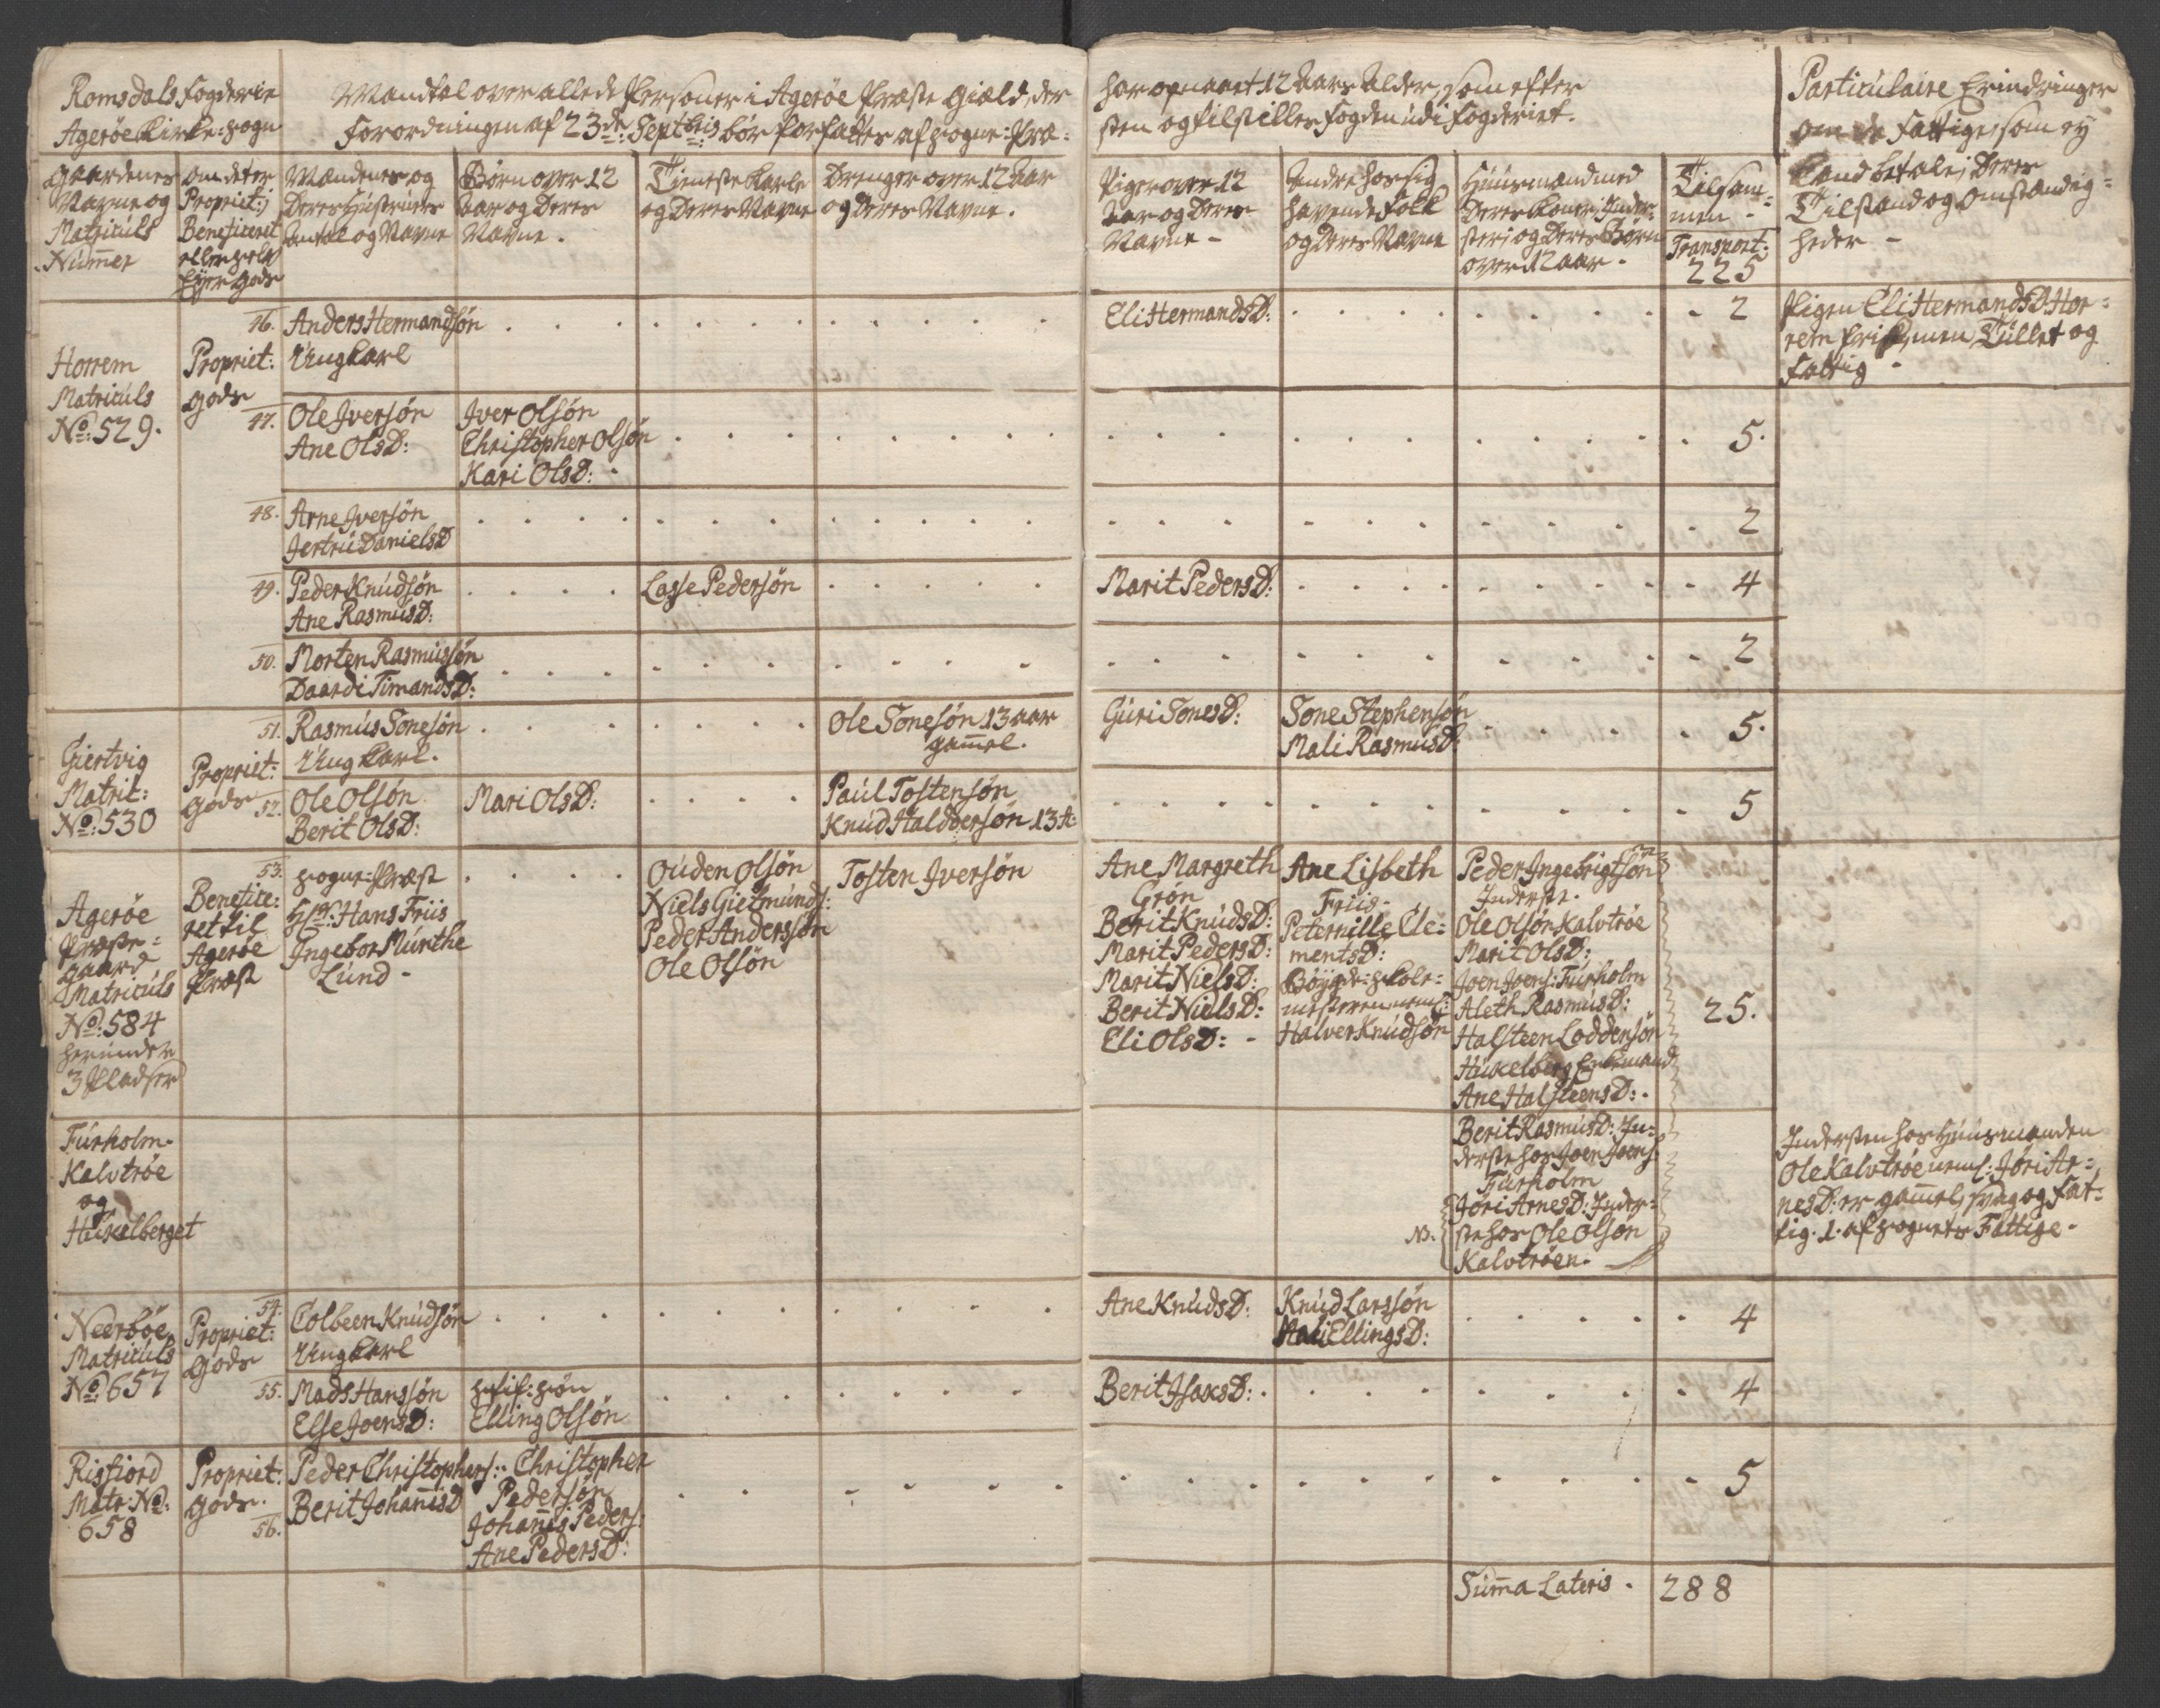 Romsdals Fogderie
Agerøe Kirke-Sogn
Mandtal over alle de Persohner i Agerøe Præste Giæld, der
Forordningen af 23de: Septbris bør forfattes af Sogne-Præ-
har opnaaet 12 Aars Alder, som efter
sten og tilstilles Fogden udi Fogderiet.
Particulaire Erindringer
om de Fattige, som ey
kand betale, deres
Tilstand og Omstændig-
heder -
Gaardenes
Navne og
Matriculs
Nummer
Om det er
Propriet:
Beneficeret
eller Selv
Eyer Gods
Mændenes og
deres Hustruers
Antal og Navne
Børn over 12
Aar og deres
Navne.
Tieneste Karle
og deres Navne
Drenger over 12 Aar
og deres Navne.
Piger over 12
Aar og deres
Navne -
Andre hos sig
havende Folk
og deres Navne
Huusmænd med
deres Koner, Inder-
ster og deres Børn
over 12 Aar.
Tilsam-
men -
Transport:
225
Horrem
Matriculs
No: 529.
Propriet:
Gods
46. Anders Hermandsøn
Ung Karl
Eli HermandsD:
2
Pigen Eli HermandsD: Hor-
rem frisk, men Tullet og
Fattig -
47. Ole Iversøn
Ane OlsD:
Iver Olsøn
Christopher Olsøn
Kari OlsD:
5.
48. Arne Iversøn
Jertru DanielsD
2
49. Peder Knudsøn
Ane RasmusD:
Lasse Pedersøn
Marit PedersD:
4
50. Morten Rasmussøn
Daardi TimandsD:
2
Giertvig
Matric:
No: 530
Propriet:
Gods
51. Rasmus Sonesøn
Ung Karl.
Ole Sonesøn 13 aar
gammel.
Guri SonesD:
Sone Stephensøn
Mali RasmusD:
5.
52. Ole Olsøn
Berit OlsD:
Mari OlsD:
Paul Tostensøn
Knud Haldoersøn 13 A:
5
Agerøe
Præste-
gaard
Matriculs
No: 584
herunder
3 Pladser
Benefice-
ret til
Agerøe
Præst
53. Sogne-Præst
Hr: Hans Friis
Ingebor Munthe
Lund -
Ouden Olsøn
Niels Gietmunds:
Peder Anderssøn
Ole Olsøn
Tosten Iversøn
Ane Margreth
Grøn
Berit KnudsD:
Marit PedersD:
Marit NielsD:
Berit NielsD:
Eli OlsD: -
Ane Lisbeth
Friis -
Peternille Cle-
mentsD:
Bøygde-Skole-
mesteren neml:
Halver Knudsøn
Peder Ingebrigtsøn
Inderste.
Ole Olsøn Kalvtrøe
Marit OlsD:
Joen Joens: Furholm
Aleth RasmusD:
Halsteen Loddensøn
Hukelberg Enkemand
Ane HalsteensD: -
25.
Furholm
Kalvtrøe
og
Hukelberget
Berit RasmusD: In-
derste hos Joen Joens:
Furholm
NB. Jøri ArnesD: Inder-
ste hos Ole Olsøn
Kalvtrøen.
Indersten hos Huusmanden
Ole Kalvtrøe neml: Jøri Ar-
nesD: er gammel, svag og Fat-
tig. 1. af Sognets Fattige.
Neerbøe
Matriculs
No: 657
Propriet:
Gods
54. Colbeen Knudsøn
Ung Karl
Ane KnudsD:
Knud Larssøn
Mali EllingsD:
4
55. Mads Hanssøn
Else JoensD:
Stif-Søn
Elling Olsøn
Berit IsaksD:
4
Risfiord
Matr: No:
658
Propriet:
Gods.
56.
Peder Christophers:
Berit JohannisD
Christopher
Pedersøn
Johannis Peders:
Ane PedersD:
5
Summa Lateris. 288